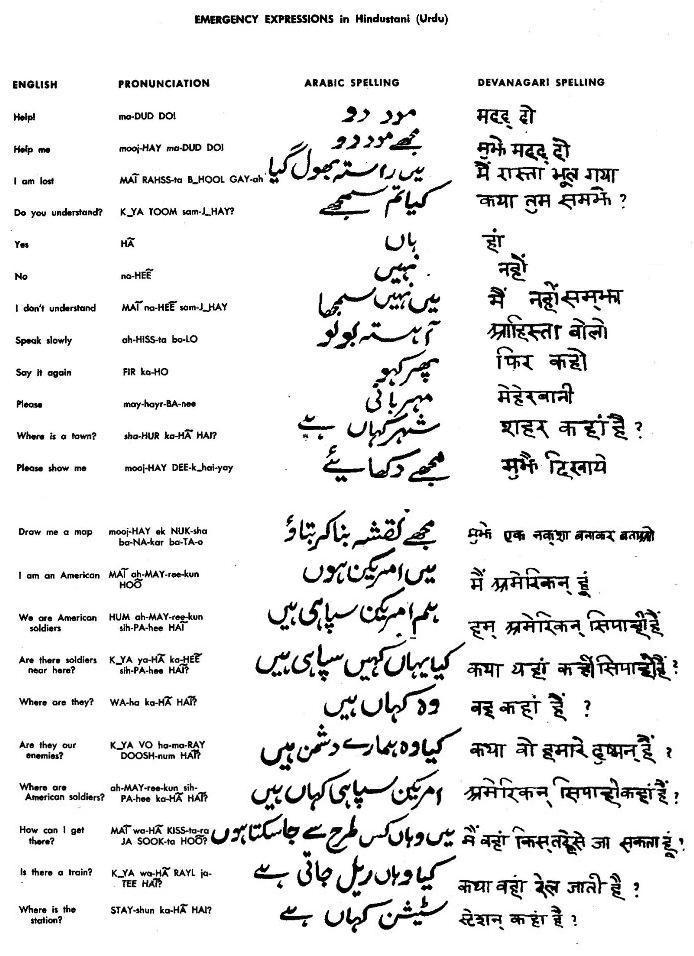 EMERGENCY EXPRESSIONS in Hindustani (Urdu)
ENGLISH PRONUNCIATION ARABIC SPELLING DEVANAGARI SPELLING
Help! ma-DUD DO! مدد دو मदद् दो
Help me mooj-HAY ma-DUD DO! مجھے مدد دو मुझे मदद् दो
I am lost MAĨ RAHSS-ta B_HOOL GAY-ah میں راستہ بھول گیا मैं रास्ता भूल गया
Do you understand? K_YA TOOM sam-J_HAY? کیا تم سمجھے कया तुम समझे ?
Yes HÃ ہاں हां
No na-HEẼ نہیں नहीं
I don't understand MAĨ na-HEẼ sam-J_HAY میں نہیں سمجھا मैं नहीं समझा
Speak slowly ah-HISS-ta bo-LO آہستہ بولو आहिस्ता बोलो
Say it again FIR ka-HO پھر کہو फिर कहो
Please may-hayr-BA-nee مہربانی मेहेरबानी
Where is a town? sha-HUR ka-HÃ HAI? شہر کہاں ہے शहर कहां है ?
Please show me mooj-HAY DEE-k_hai-yay مجھے دکھایئے मुझै दिखाये
Draw me a map mooj-HAY ek NUK-sha مجھے نقشہ بنا کر بتاؤ मुझे एक नकशा बनाकर बताओ
ba-NA-kar ba-TA-o
I am an American MAĨ ah-MAY-ree-kun میں امریکن ہوں मैं अमेरिकन् हूं
HOÕ
We are American HUM ah-MAY-ree-kun ہم امریکن سپاہی ہیں हम् अमेरिकन् सिपाही हैं
soldiers sih-PA-hee HAĨ
Are there soldiers K_YA ya-HÃ ka-HEẼ کیا یہاں کہیں سپاہی ہیں कया यहां कहीं सिपाही हैं ?
near here? sih-PA-hee HAĨ?
Where are they? WA-ha ka-HÃ HAĨ? وہ کہاں ہیں वह कहां हैं ?
Are they our K_YA VO ha-ma-RAY کیا وہ ہمارے دشمن ہیں कया वो हमारे दुषमन् हैं ?
enemies? DOOSH-num HAĨ?
Where are ah-MAY-ree-kun sih- امریکن سپاہی کہاں ہیں अमेरिकन् सिपाही कहां हैं ?
American soldiers? PA-hee ka-HÃ HAĨ?
How can I get MAĨ wa-HÃ KISS-ta-ra میں وہاں کس طرح سے جا سکتا ہوں मैं वहां किस तरह से जा सकता हूं ?
there? JA SOOK-ta HOÕ?
Is there a train? K_YA wa-HÃ RAYL ja- کیا وہاں ریل جاتی ہے कया वहां रेल जाती है ?
TEE HAI?
Where is the STAY-shun ka-HÃ HAI? سٹیشن کہاں ہے स्टेशन् कहां है ?
station?